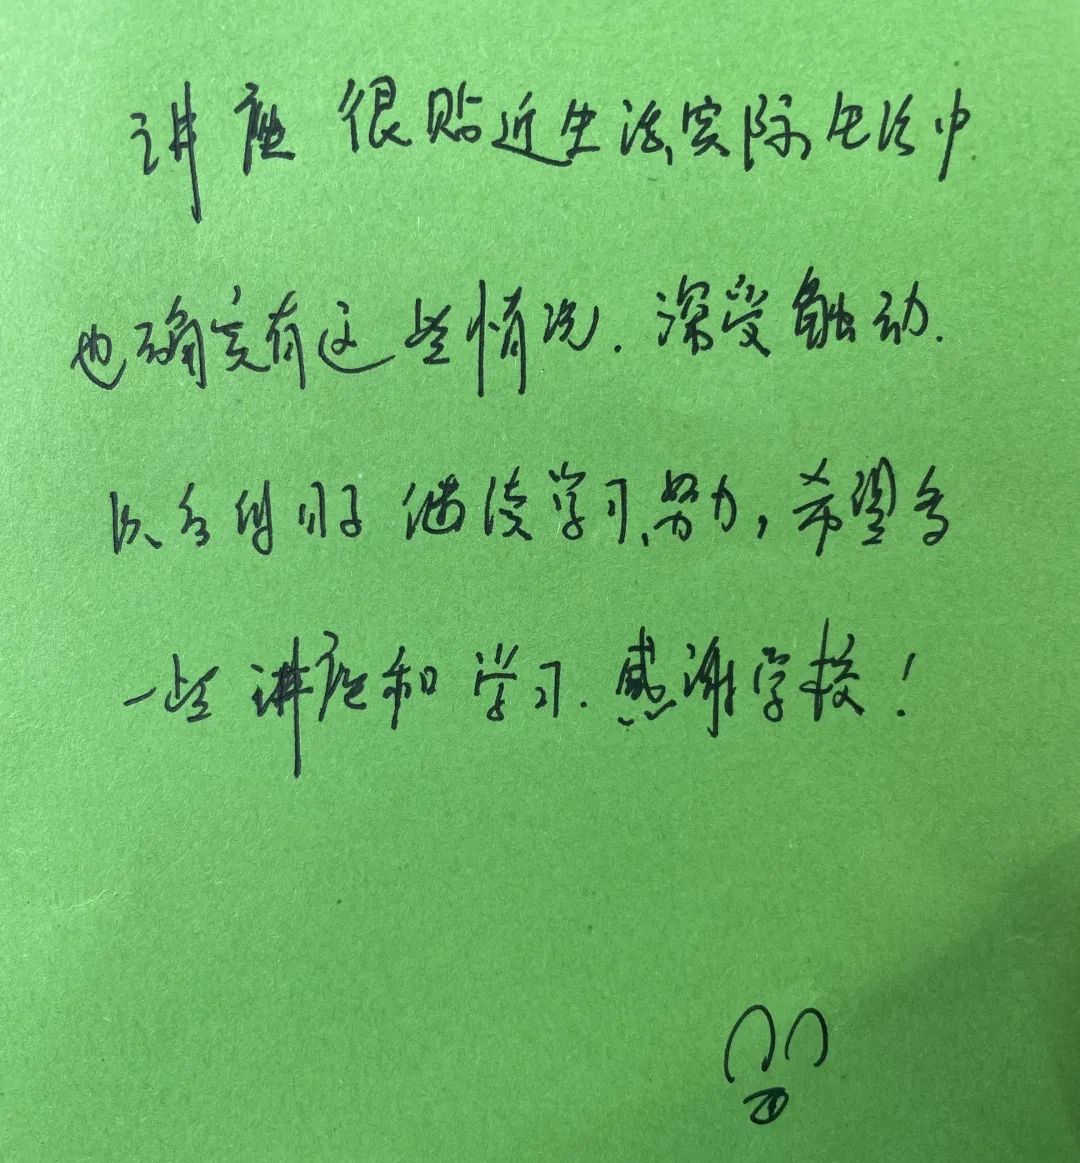 讲座很贴近生活实际,生活中
也确实有这些情况.深受触动.
以后自己继续学习,努力,希望多
一些讲座和学习.感谢学校!